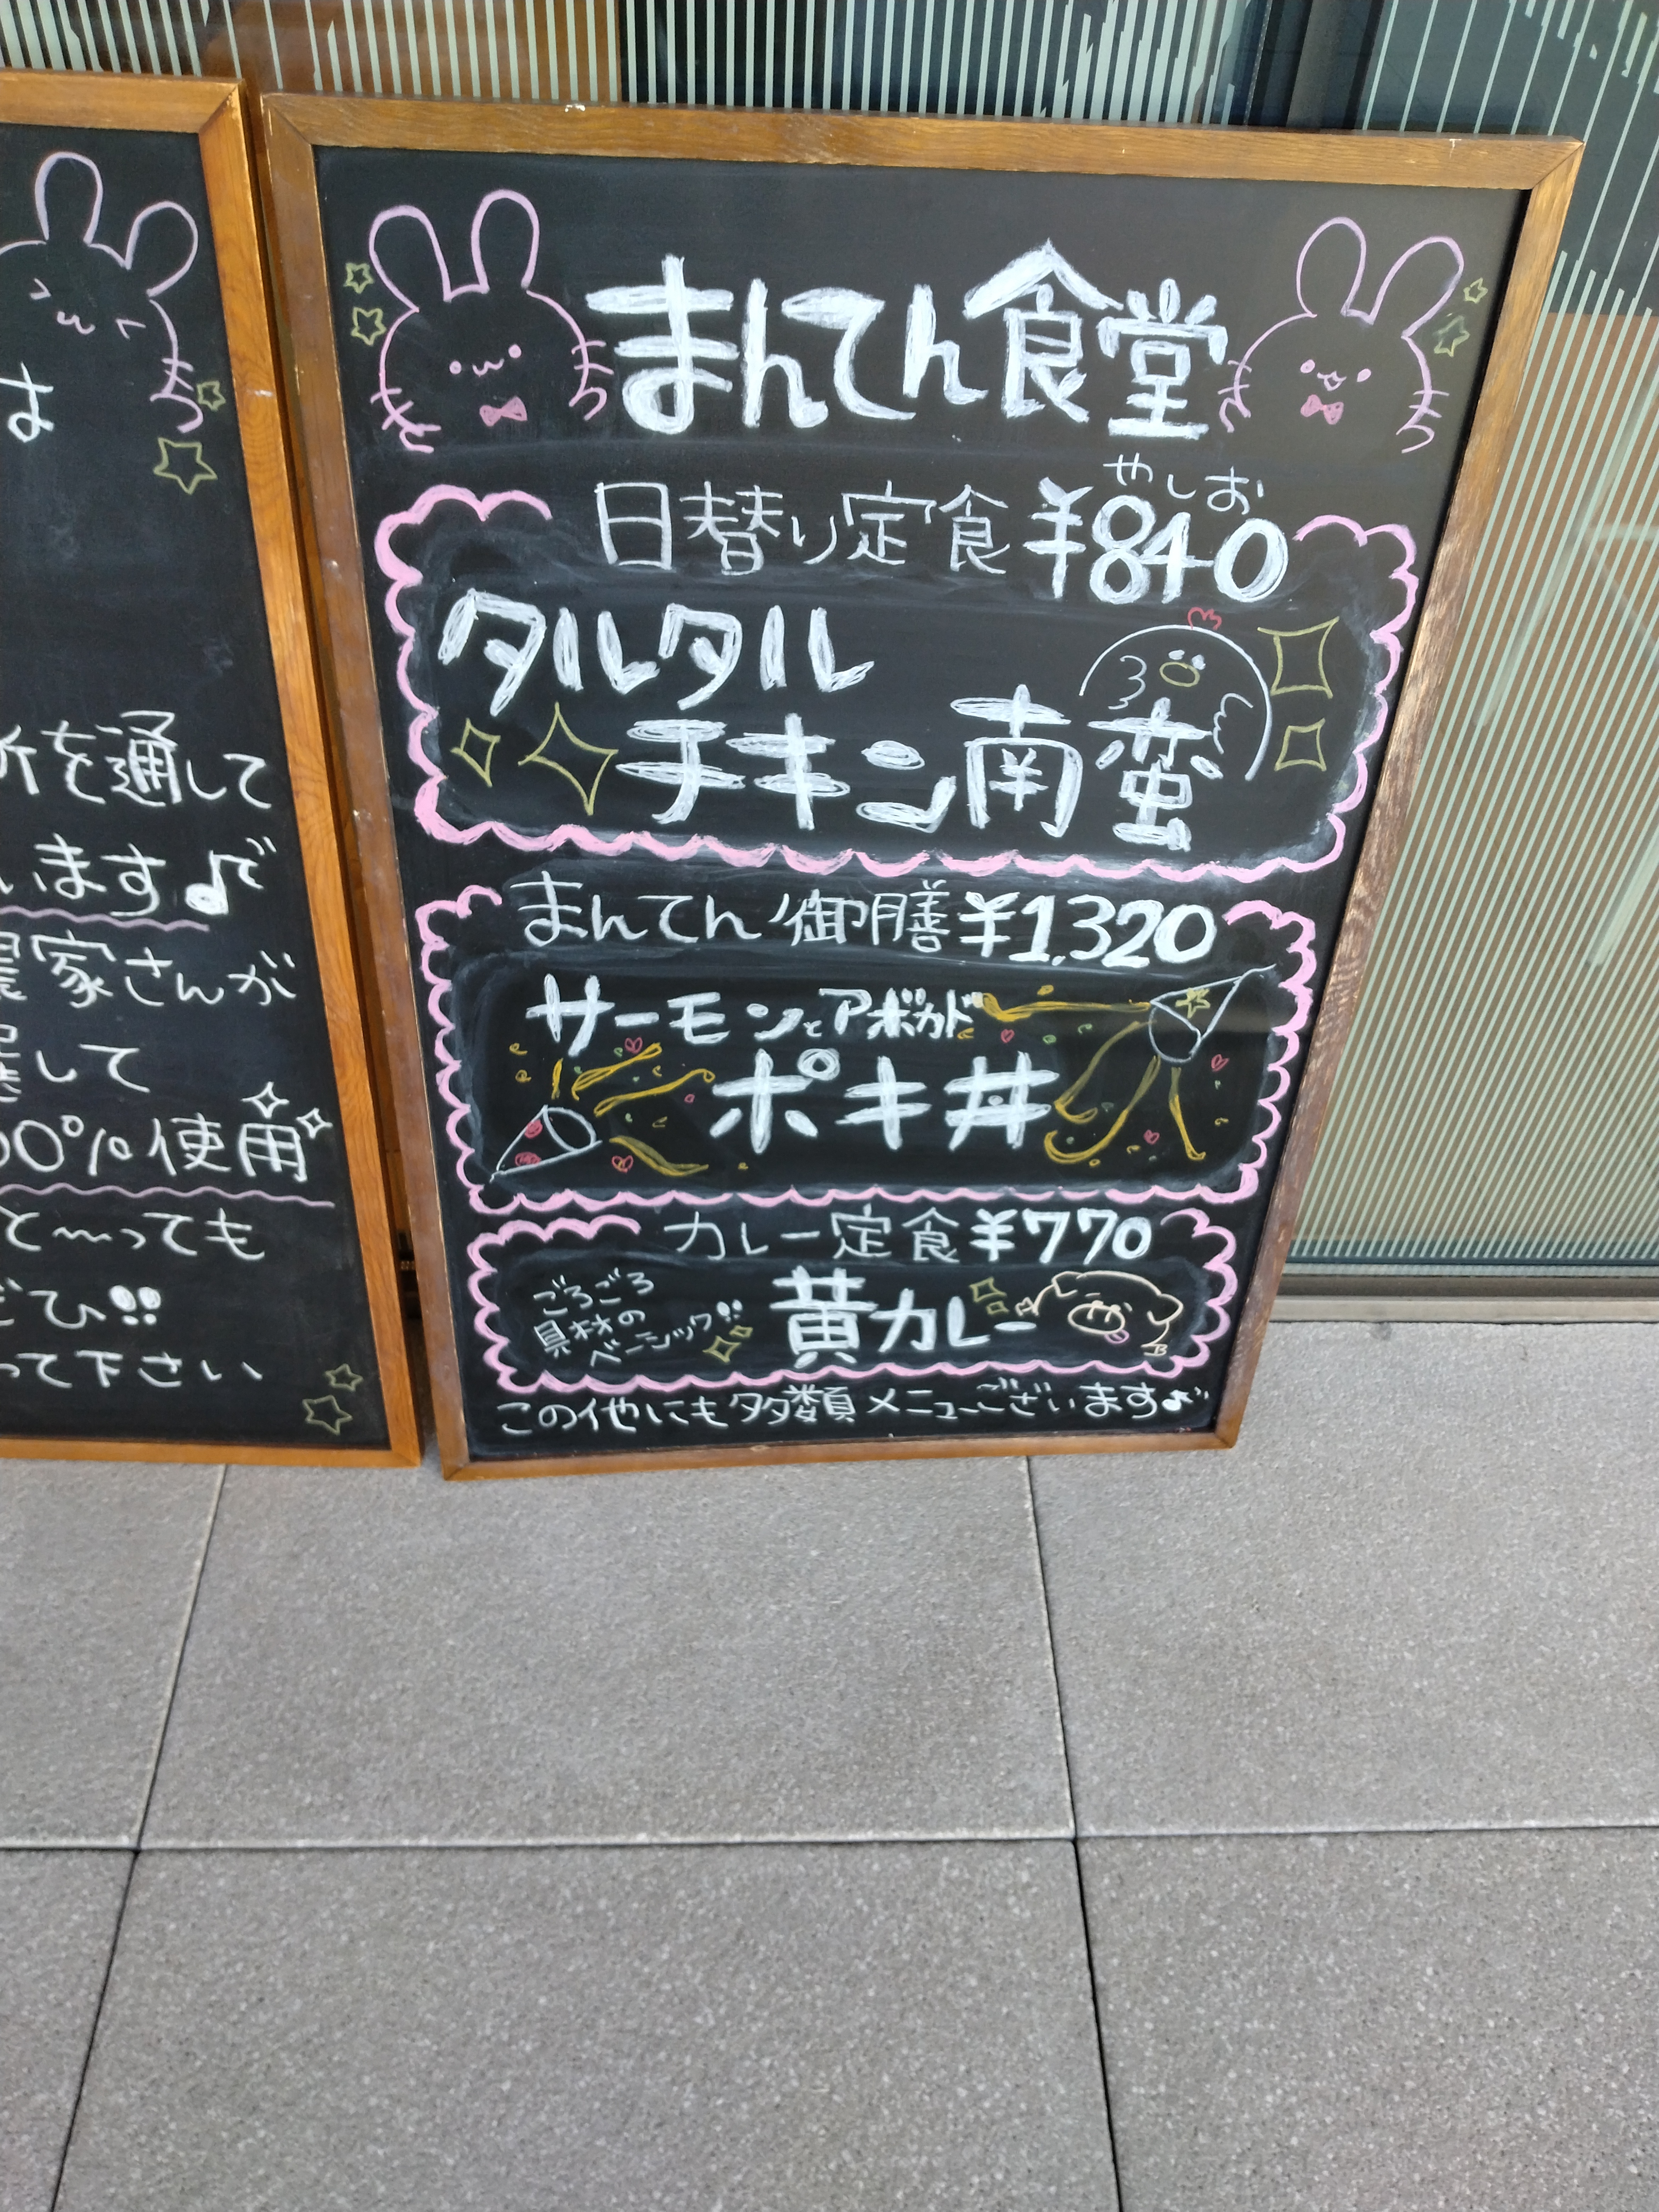 は
所を通して
います♪で
農家さんが
して
00%使用
と〜っても
ぜひ!!
って下さい
まんてん食堂
やしお
日替り定食 ¥840
タルタル
チキン南蛮
まんてん御膳 ¥1,320
サーモンとアボカド
ポキ丼
カレー定食 ¥770
ごろごろ
具材の
ベーシック!!
黄カレー
この他にも多数類メニューございます♪